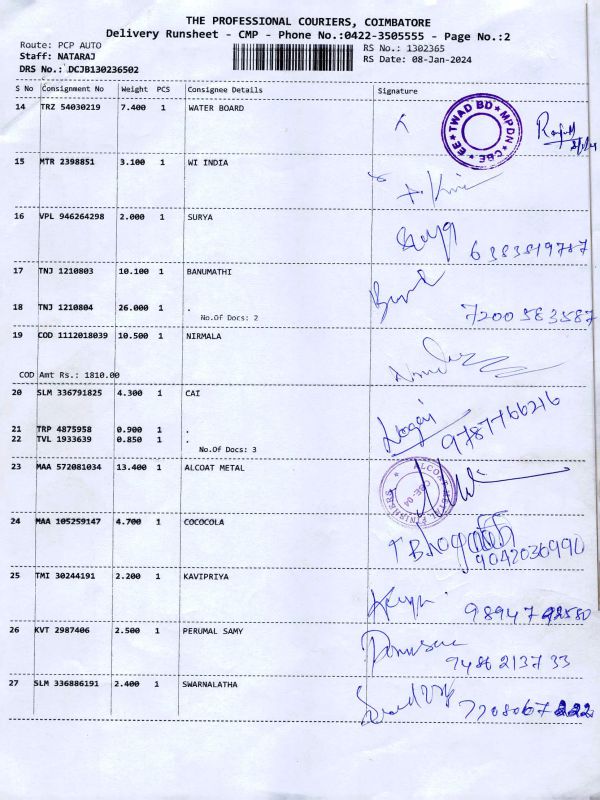 THE PROFESSIONAL COURIERS, COIMBATORE
Delivery Runsheet - CMP - Phone No.:0422-3505555 - Page No.:2
Route: PCP AUTO
RS No.: 1302365
Staff: NATARAJ
RS Date: 08-Jan-2024
DRS No.: DCJB130236502
S No Consignment No Weight PCS Consignee Details Signature
14 TRZ 54030219 7.400 1 WATER BOARD
EE ★ TWAD BD ★ MPDN ★ CBE ★
15 MTR 2398851 3.100 1 WI INDIA
16 VPL 946264298 2.000 1 SURYA
6383819787
17 TNJ 1210803 10.100 1 BANUMATHI
18 TNJ 1210804 26.000 1 .
No.Of Docs: 2
7200583587
19 COD 1112018039 10.500 1 NIRMALA
COD Amt Rs.: 1810.00
20 SLM 336791825 4.300 1 CAI
9787766216
21 TRP 4875958 0.900 1 .
22 TVL 1933639 0.850 1 .
No.Of Docs: 3
23 MAA 572081034 13.400 1 ALCOAT METAL
ALCOAT METAL FINISHERS
CBE-04
24 MAA 105259147 4.700 1 COCOCOLA
9042036990
25 TMI 30244191 2.200 1 KAVIPRIYA
9894792580
26 KVT 2987406 2.500 1 PERUMAL SAMY
9486213733
27 SLM 336886191 2.400 1 SWARNALATHA